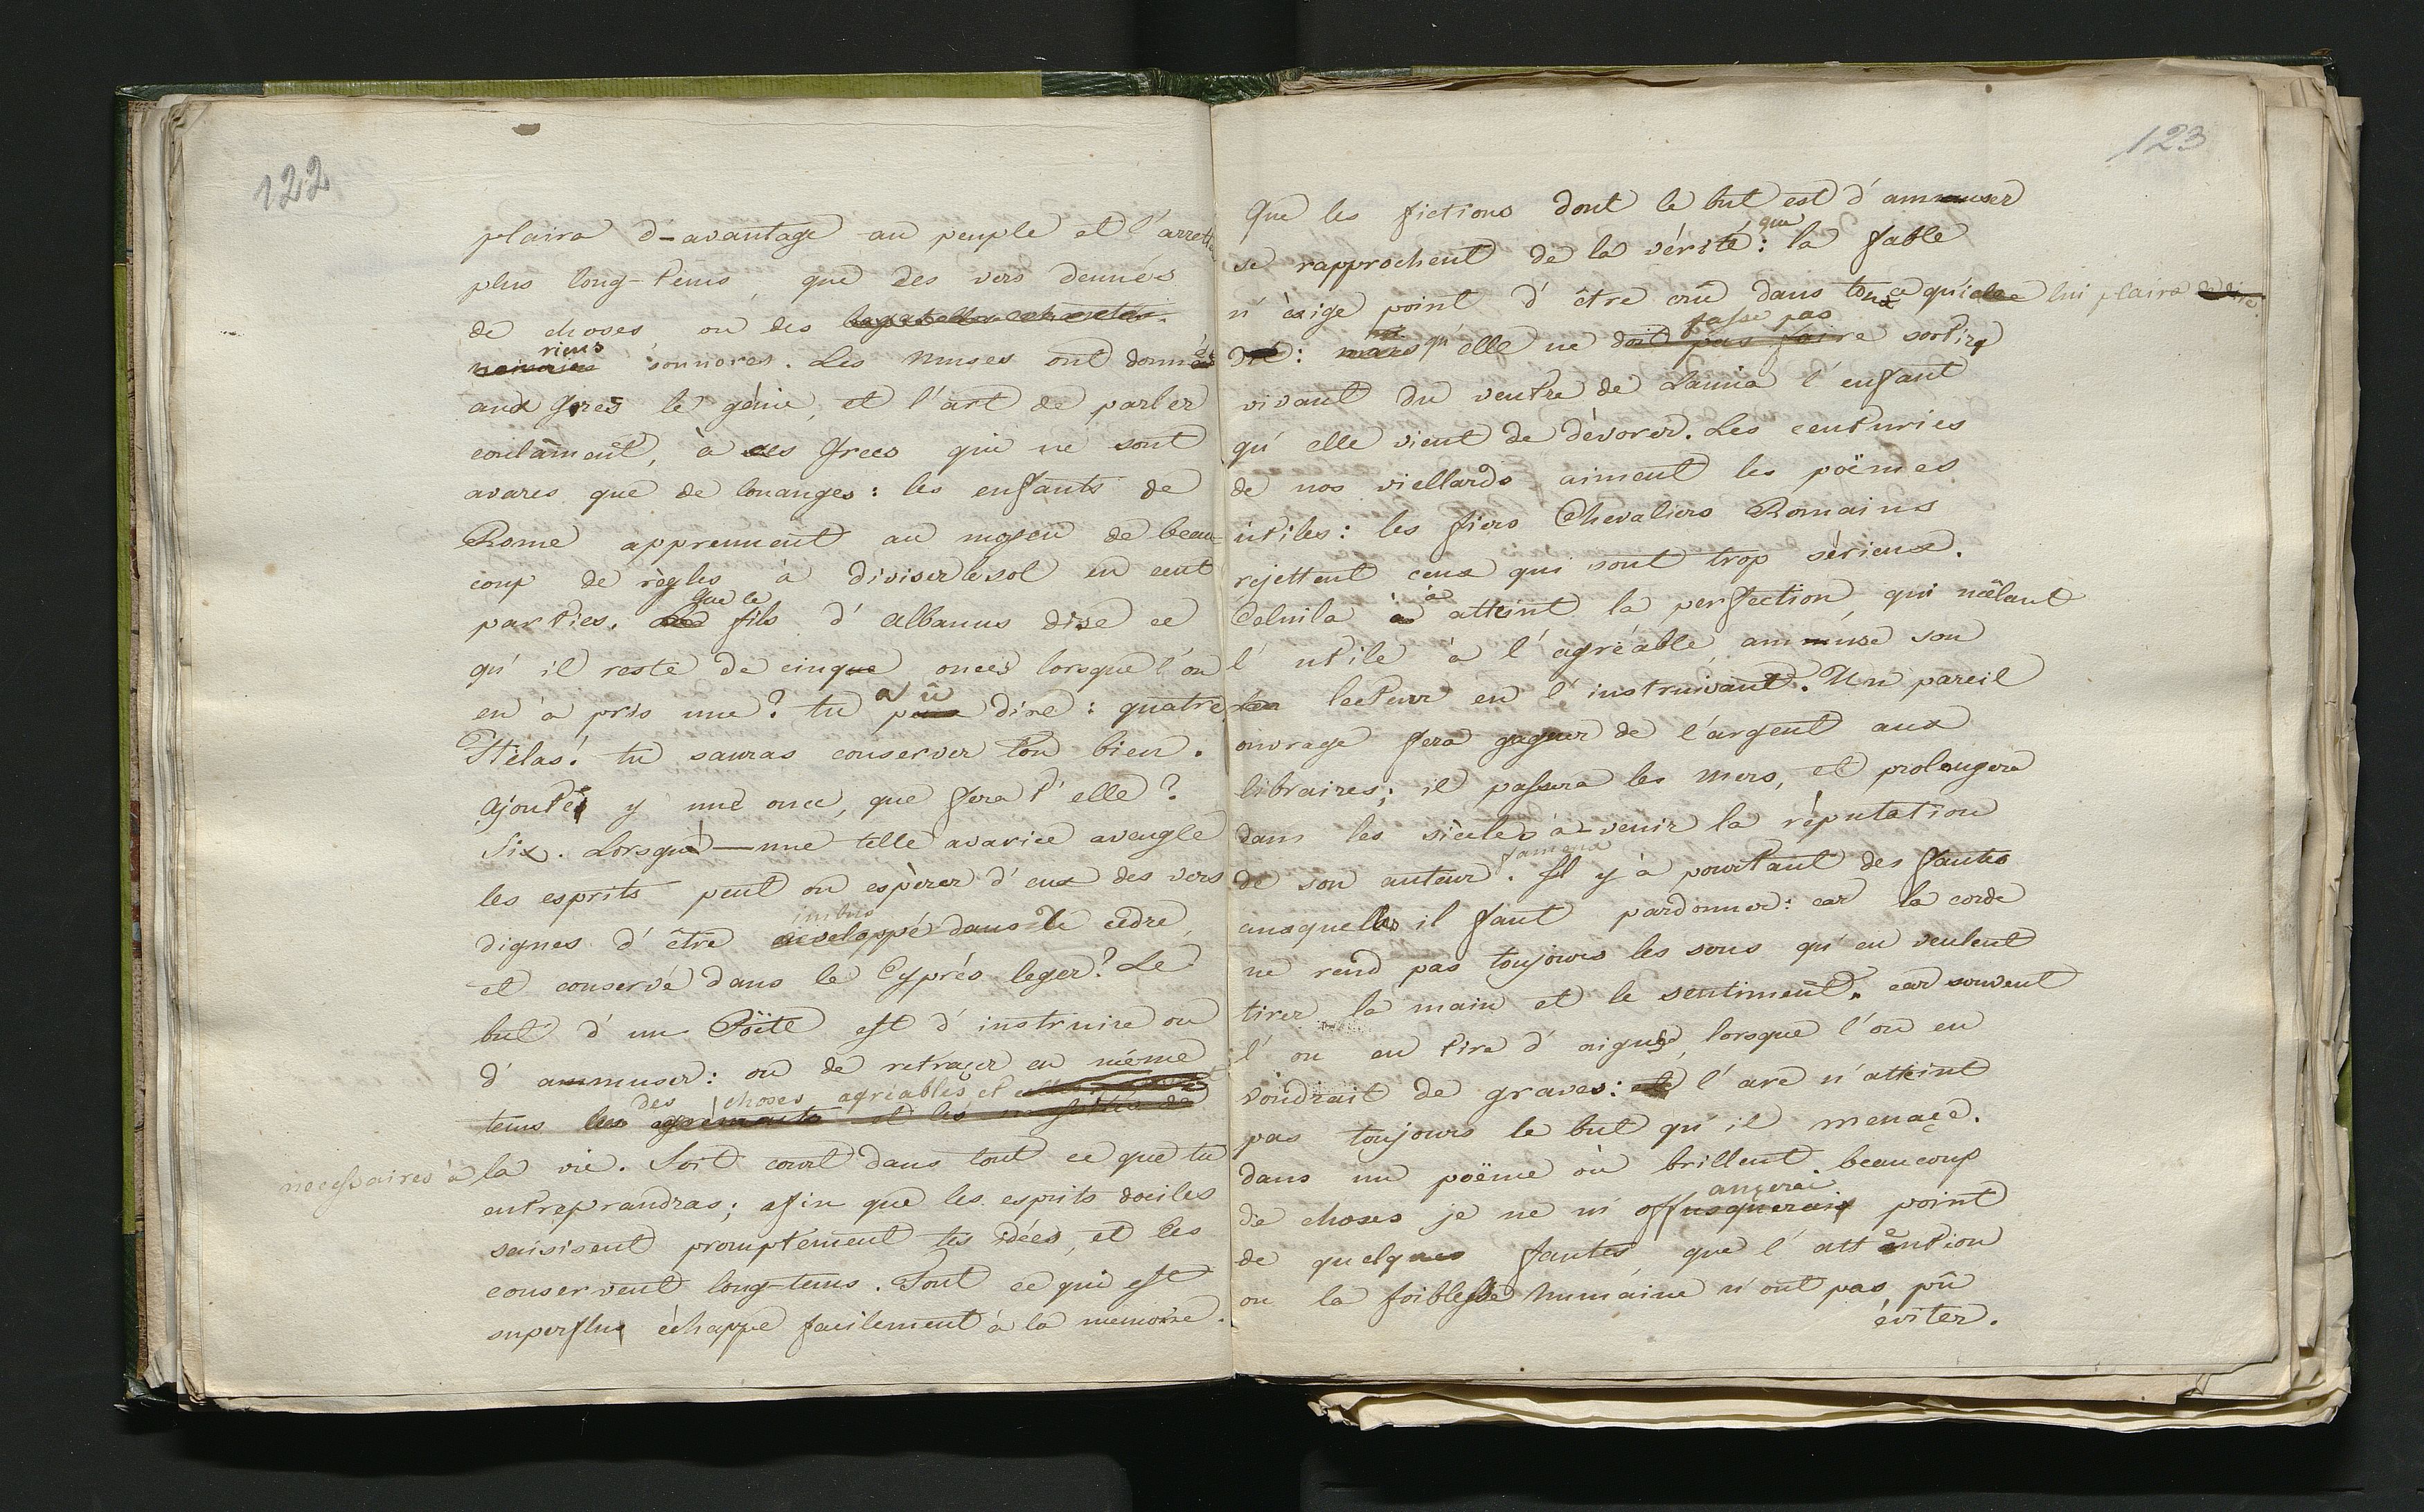 122
plaira d-avantage au peuple et l'arrett
plus long-tems, que des vers denués
de choses ou des bagatelles
riens
sonnores. Les Muses ont donnés
aux grecs le génie, et l'art de parler
coulament, à ces grecs qui ne sont
avares que de louanges: les enfants de
Rome apprennent au moyen de beau-
coup de règles à diviser le sol en cent
que le
parties. fils d'albanus dise ce
qu'il reste de cinque onces lorsque l'on
a û
en a pris une? tu dire: quatre
Hélas! tu sauras conserver ton bien.
ajoutés y une once, que fera t'elle?
Six. Lorsque — une telle avarice aveugle
les esprits peut on espèrer d'eux des vers
imbus
dignes d'être enveloppé dans le cèdre,
et conservé dans le Cyprés leger? Le
but d'un Poëte est d'instruire ou
d'ammuser: ou de retraçer en même
des choses agréables et
tems les agréments et les
necessaires à la vie. Soit court dans tout ce que tu
entreprandras; afin que les esprits dociles
saisisent promptement tes idées, et les
conservent long-tems. Tout ce qui est
superflus échappe facilement à la memoire.
123
Que les fictions dont le but est d'ammuser
que
se rapprochent de la vérité: la fable
n'exige point d'être crue dans tous ce qu'elle lui plaira
fasse pas
dire: mais qu'elle ne doit pas faire sortir
vivant du ventre de Lamia l'enfant
qu'elle vient de dévorer. Les centuries
de nos viellards aiment les poëmes
útiles: les fiers Chevaliers Romains
rejettent ceux qui sont trop sérieux.
à
Celuila à atteint la perfection, qui mêlant
l'utile à l'agréable, ammuse son
lecteur en l'instruisant. Un pareil
ouvrage fera gagner de l'argent aux
libraires; il passera les mers, et prolongera
dans les siècles à-venir la réputation
fameux
de son auteur. Il y à pourtant des fautes
auxquelles il faut pardonner: car la corde
ne rend pas toujours les sons qu'en veulent
tirer la main et le sentiment. car souvent
l'on en tire d'aigus, lorsque l'on en
voudrait de graves: l'arc n'atteint
pas toujours le but qu'il menaçe.
dans un poëme où brillent beaucoup
ançerai
de choses je ne m'offusquerais point
de quelques fautes, que l'attention
ou la foiblesse humaine n'ont pas pû
éviter.